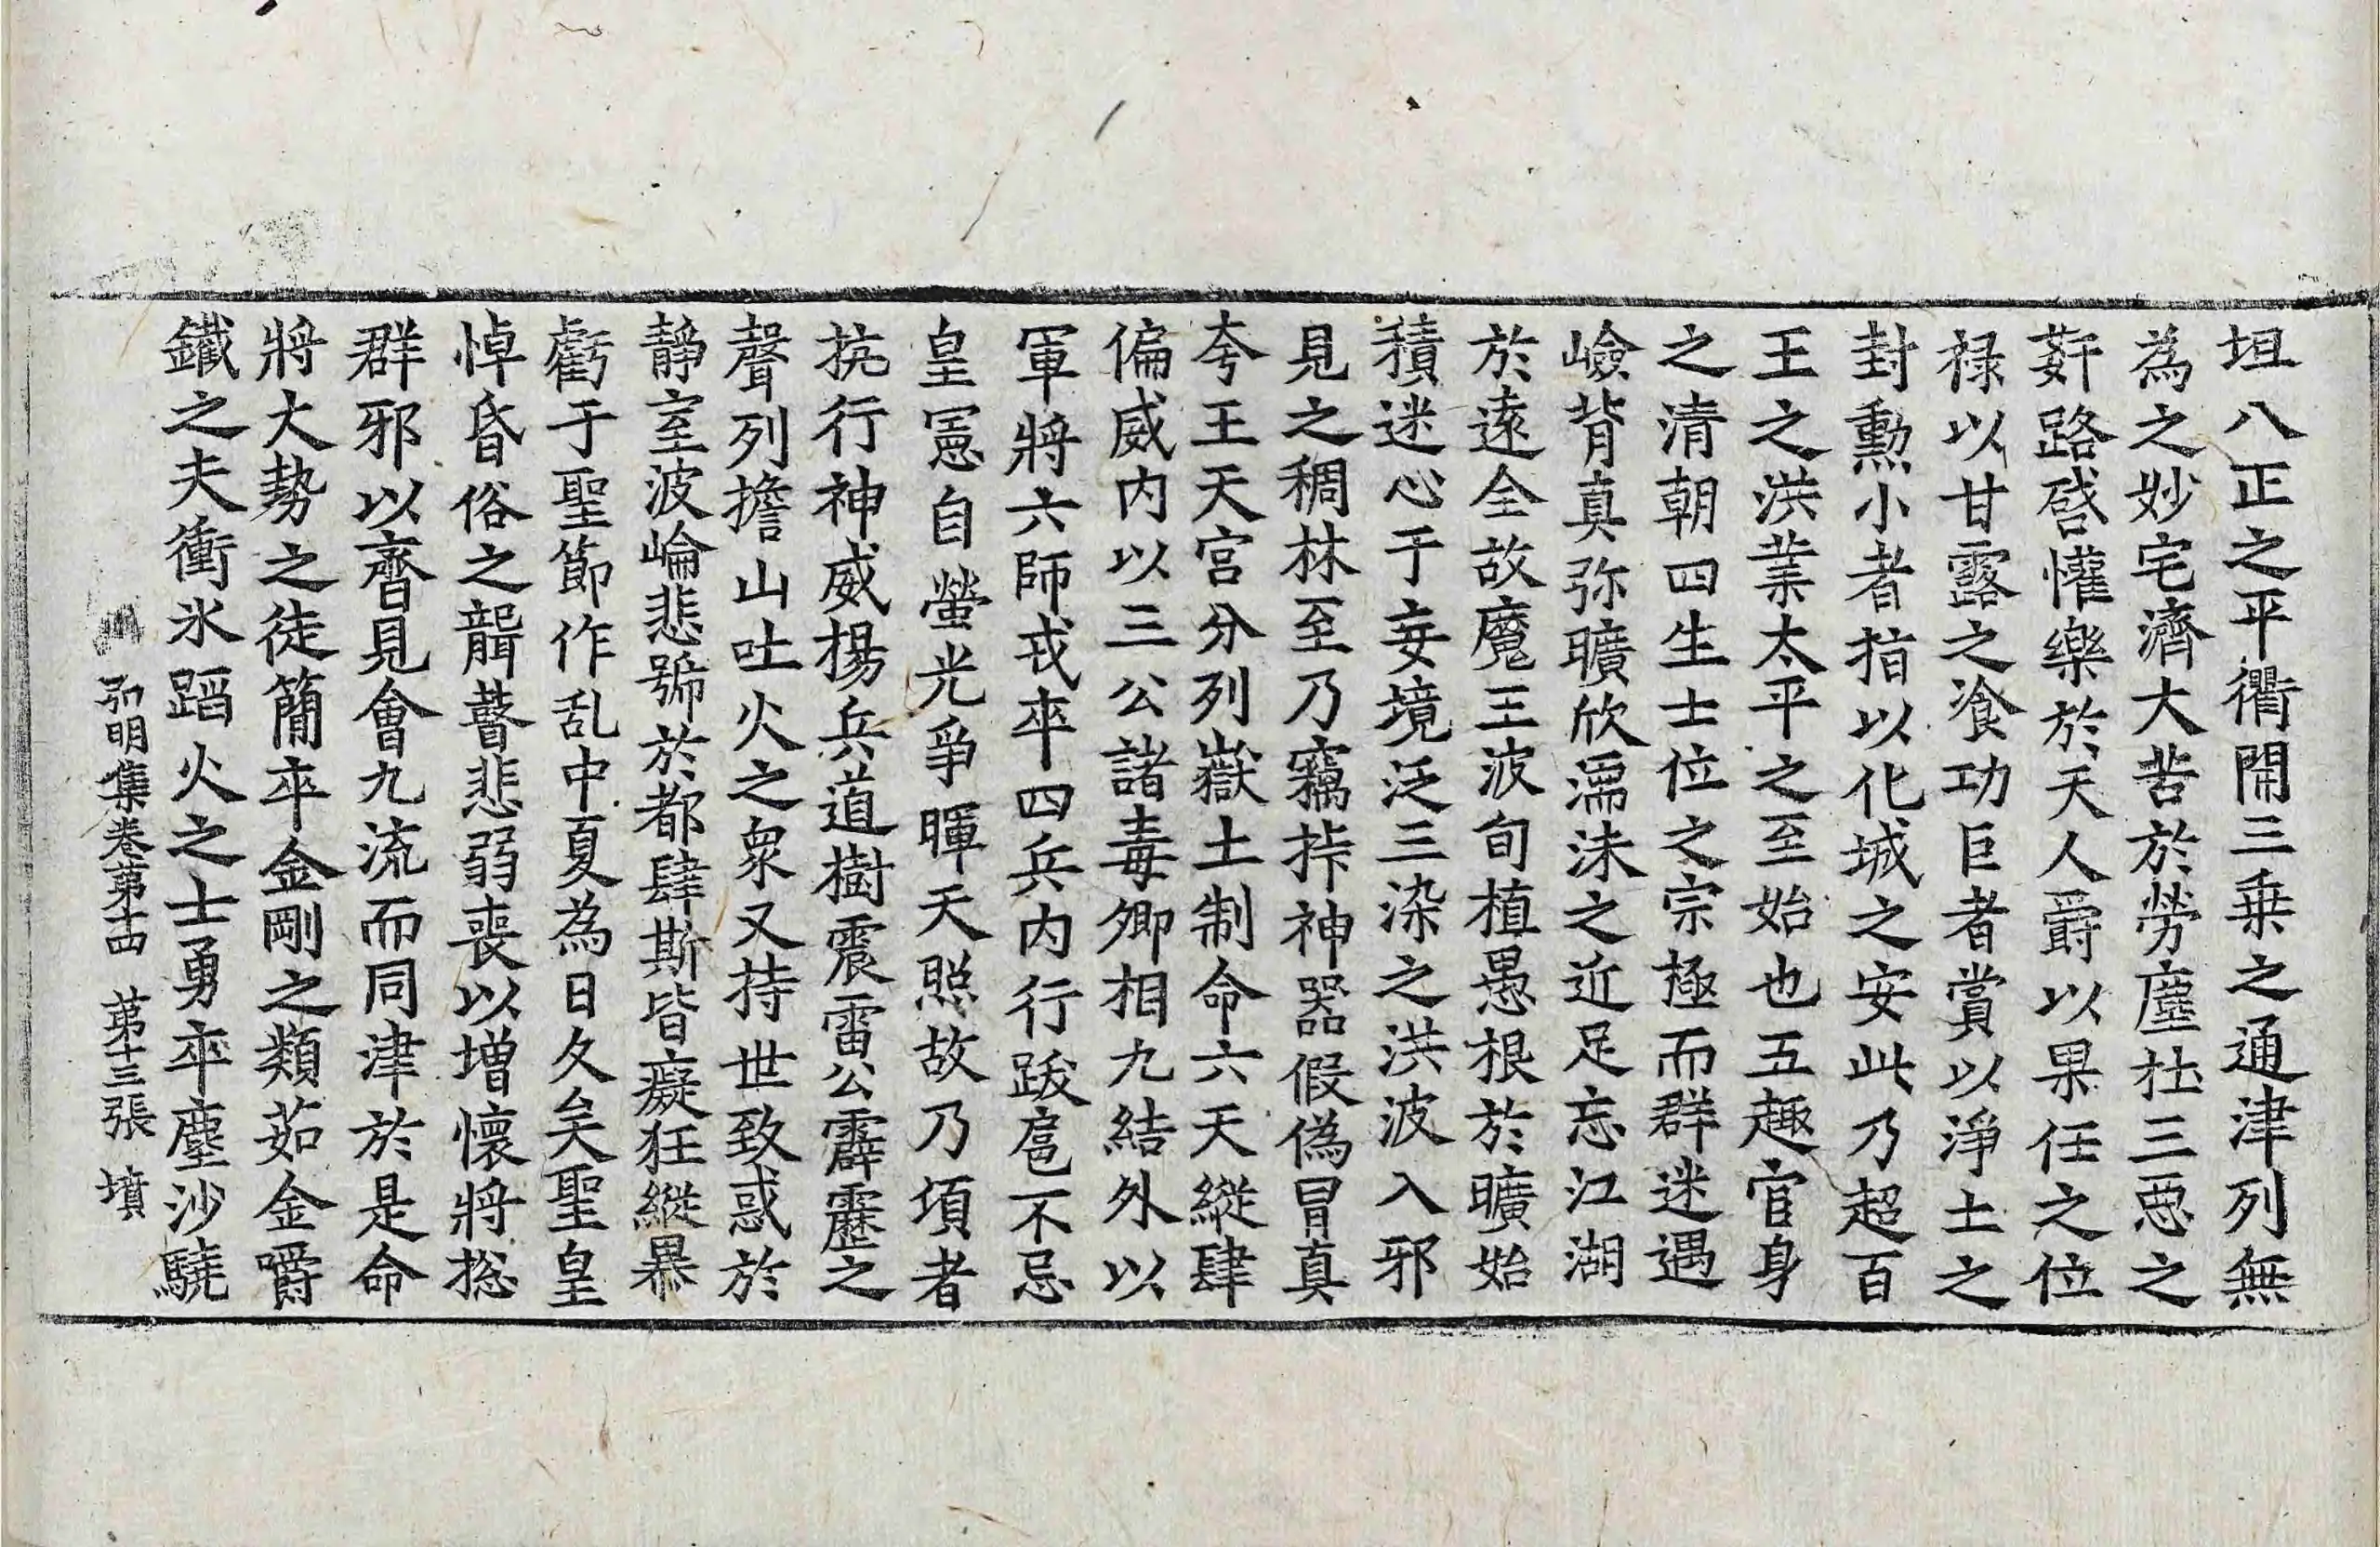 坦八正之平衢開三乗之通津列無
為之妙宅濟大苦於勞塵杜三惡之
姧路啓懽樂於天人爵以果任之位
禄以甘露之飡功巨者賞以淨土之
封勲小者指以化城之安此乃超百
王之洪業太平之至始也五趣官身
之清朝四生士位之宗極而群迷遇
嶮背真弥曠欣濡沫之近足忘江湖
於遠全故魔王波旬植愚根於曠始
積迷心于妄境泛三染之洪波入邪
見之稠林至乃竊㨋神器假偽冒真
夸王天宮分列嶽土制命六天縱肆
偏威内以三公諸毒卿相九結外以
軍將六師戎卒四兵内行跋扈不忌
皇憲自螢光爭暉天照故乃項者
抗行神威揚兵道樹震雷公霹靂之
聲列擔山吐火之衆又持世致惑於
静室波崘悲號於都肆斯皆癡狂縱暴
虧于聖節作乱中夏為日久矣聖皇
悼昏俗之聾瞽悲弱喪以増懷將揔
群邪以齊見會九流而同津於是命
將大勢之徒簡卒金剛之類茹金嚼
鐵之夫衝氷蹈火之士勇卒塵沙驍
弘明集卷第十四 第十三張 墳